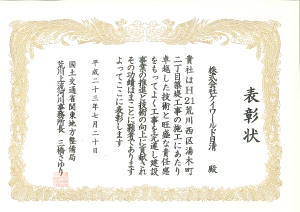 表彰状
株式会社アイワールド日清 殿
貴社はＨ２１荒川西区湯木町
二丁目築堤工事の施工にあたり
卓越した技術と旺盛な責任感
をもってよく工事を完遂し建設
事業の推進と技術の向上に貢献され
その功績はまことに顕著であります
よってここに表彰します
平成二十三年七月二十日
国土交通省関東地方整備局
荒川上流河川事務所長 三橋さゆり